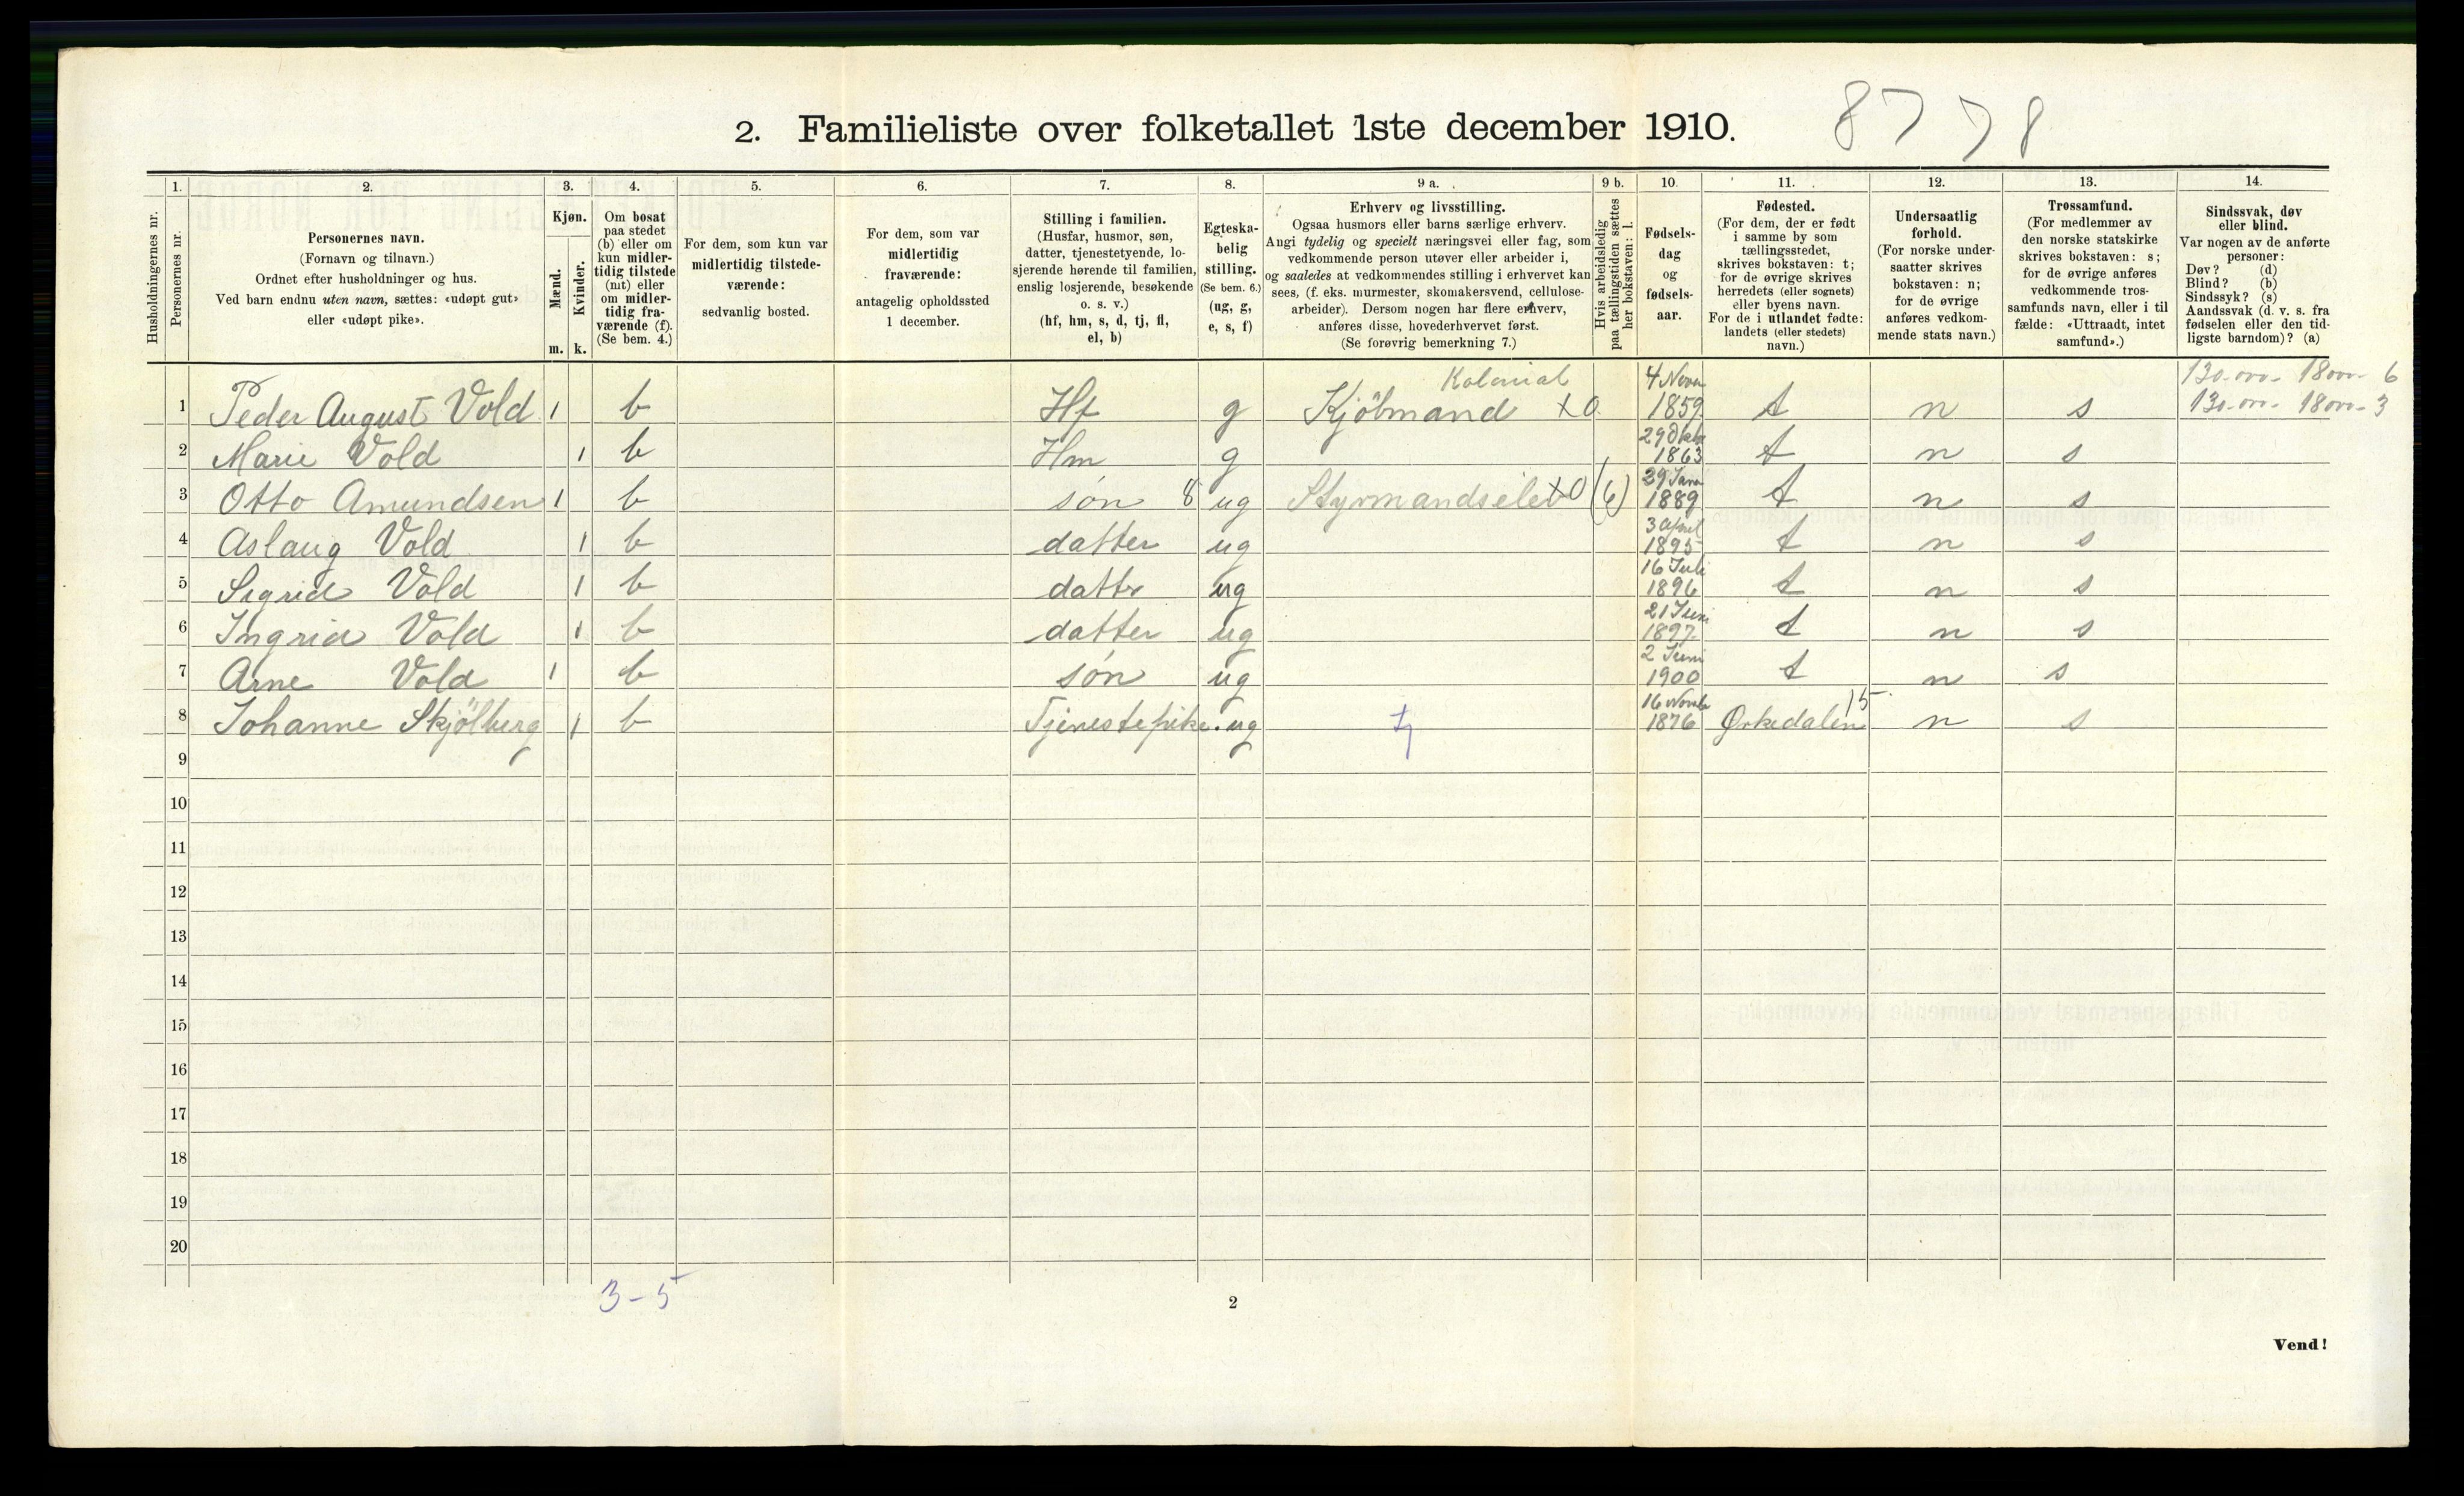 8778
2. Familieliste over folketallet 1ste december 1910.
Husholdningernes nr.
1. Personernes nr.
2. Personernes navn.
(Fornavn og tilnavn.)
Ordnet efter husholdninger og hus.
Ved barn endnu uten navn, sættes: «udøpt gut»
eller «udøpt pike».
3. Kjøn.
Mænd. Kvinder.
m. k.
4. Om bosat
paa stedet
(b) eller om
kun midler-
tidig tilstede
(mt) eller
om midler-
tidig fra-
værende (f).
(Se bem. 4.)
5. For dem, som kun var
midlertidig tilstede-
værende:
sedvanlig bosted.
6. For dem, som var
midlertidig
fraværende:
antagelig opholdssted
1 december.
7. Stilling i familien.
(Husfar, husmor, søn,
datter, tjenestetyende, lo-
sjerende hørende til familien,
enslig losjerende, besøkende
o. s. v.)
(hf, hm, s, d, tj, fl,
el, b)
8. Egteska-
belig
stilling.
(Se bem. 6.)
(ug, g,
e, s, f)
9 a. Erhverv og livsstilling.
Ogsaa husmors eller barns særlige erhverv.
Angi tydelig og specielt næringsvei eller fag, som
vedkommende person utøver eller arbeider i,
og saaledes at vedkommendes stilling i erhvervet kan
sees, (f. eks. murmester, skomakersvend, cellulose-
arbeider). Dersom nogen har flere erhverv,
anføres disse, hovederhvervet først.
(Se forøvrig bemerkning 7.)
9 b. Hvis arbeidsledig
paa tællingstiden sættes
her bokstaven: l.
10. Fødsels-
dag
og
fødsels-
aar.
11. Fødested.
(For dem, der er født
i samme by som
tællingsstedet,
skrives bokstaven: t;
for de øvrige skrives
herredets (eller sognets)
eller byens navn.
For de i utlandet fødte:
landets (eller stedets)
navn.)
12. Undersaatlig
forhold.
(For norske under-
saatter skrives
bokstaven: n;
for de øvrige
anføres vedkom-
mende stats navn.)
13. Trossamfund.
(For medlemmer av
den norske statskirke
skrives bokstaven: s;
for de øvrige anføres
vedkommende tros-
samfunds navn, eller i til
fælde: «Uttraadt, intet
samfund».)
14. Sindssvak, døv
eller blind.
Var nogen av de anførte
personer:
Døv? (d)
Blind? (b)
Sindssyk? (s)
Aandssvak (d. v. s. fra
fødselen eller den tid-
ligste barndom)? (a)
1 Peder August Vold 1 b Hf g Kolonial Kjöbmand x0 4 Novem 1859 t n s
2 Marie Vold 1 b Hm g 29 Oktb 1863 t n s
3 Otto Amundsen 1 b søn 8 ug Styrmandselev x0 (6) 29 Janu 1889 t n s
4 Aslaug Vold 1 b datter ug 3 April 1895 t n s
5 Sigrid Vold 1 b datter ug 16 Juli 1896 t n s
6 Ingrid Vold 1 b datter ug 21 Juni 1897 t n s
7 Arne Vold 1 b søn ug 2 Juni 1900 t n s
8 Johanne Skjölberg 1 b Tjenestepike. ug tj 16 Novb 1876 Ørkedalen 15 n s
9
10
11
12
13
14
15
16
17
18
19
20
3-5
2
Vend!